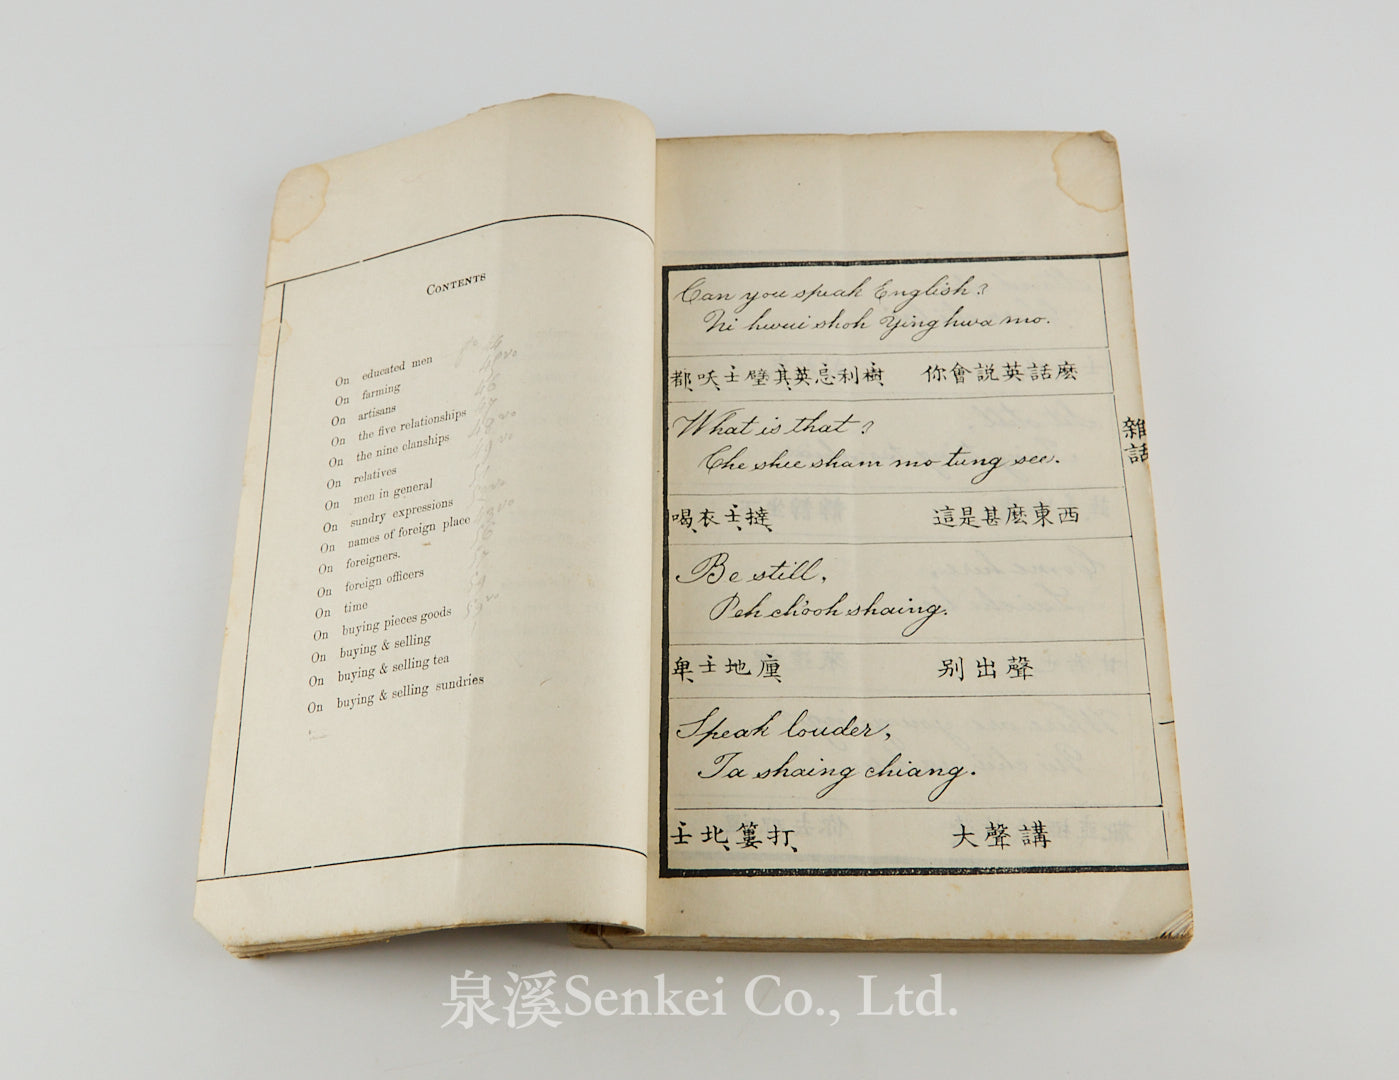 CONTENTS
On educated men
On farming
On artisans
On the five relationships
On the nine clanships
On relatives
On men in general
On sundry expressions
On names of foreign place
On foreigners.
On foreign officers
On time
On buying pieces goods
On buying & selling
On buying & selling tea
On buying & selling sundries
Can you speak English?
Ni hwui shoh Ying hwa mo.
你會説英話麽
樹利忌英其壁士呅都
What is that?
Che shee sham mo tung see.
這是甚麽東西
撻士衣喝
Be still,
Peh ch'ooh shaing.
别出聲
地士
Speak louder,
Ta shaing chiang.
大聲講
打簍北士
雜話
泉溪Senkei Co., Ltd.